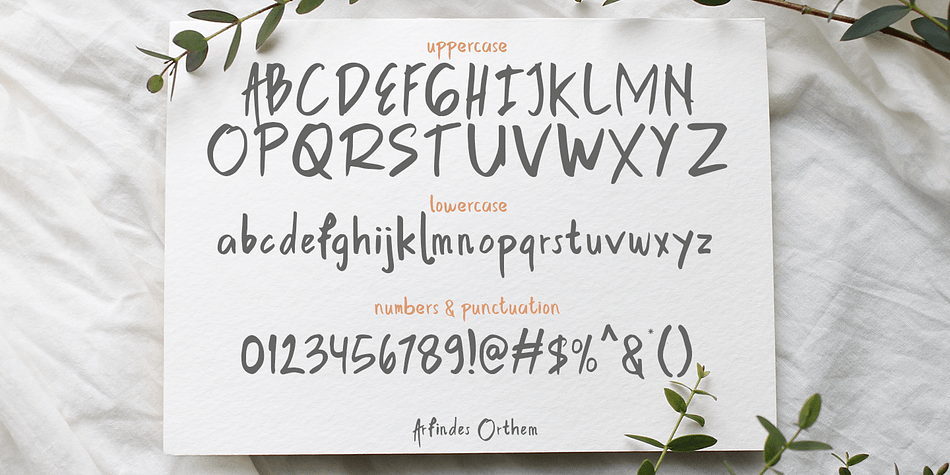 uppercase
ABCDEFGHIJKLMN
OPQRSTUVWXYZ
lowercase
abcdefghijklmnopqrstuvwxyz
numbers & punctuation
0123456789!@#$%^&*()
Arfindes Orthem